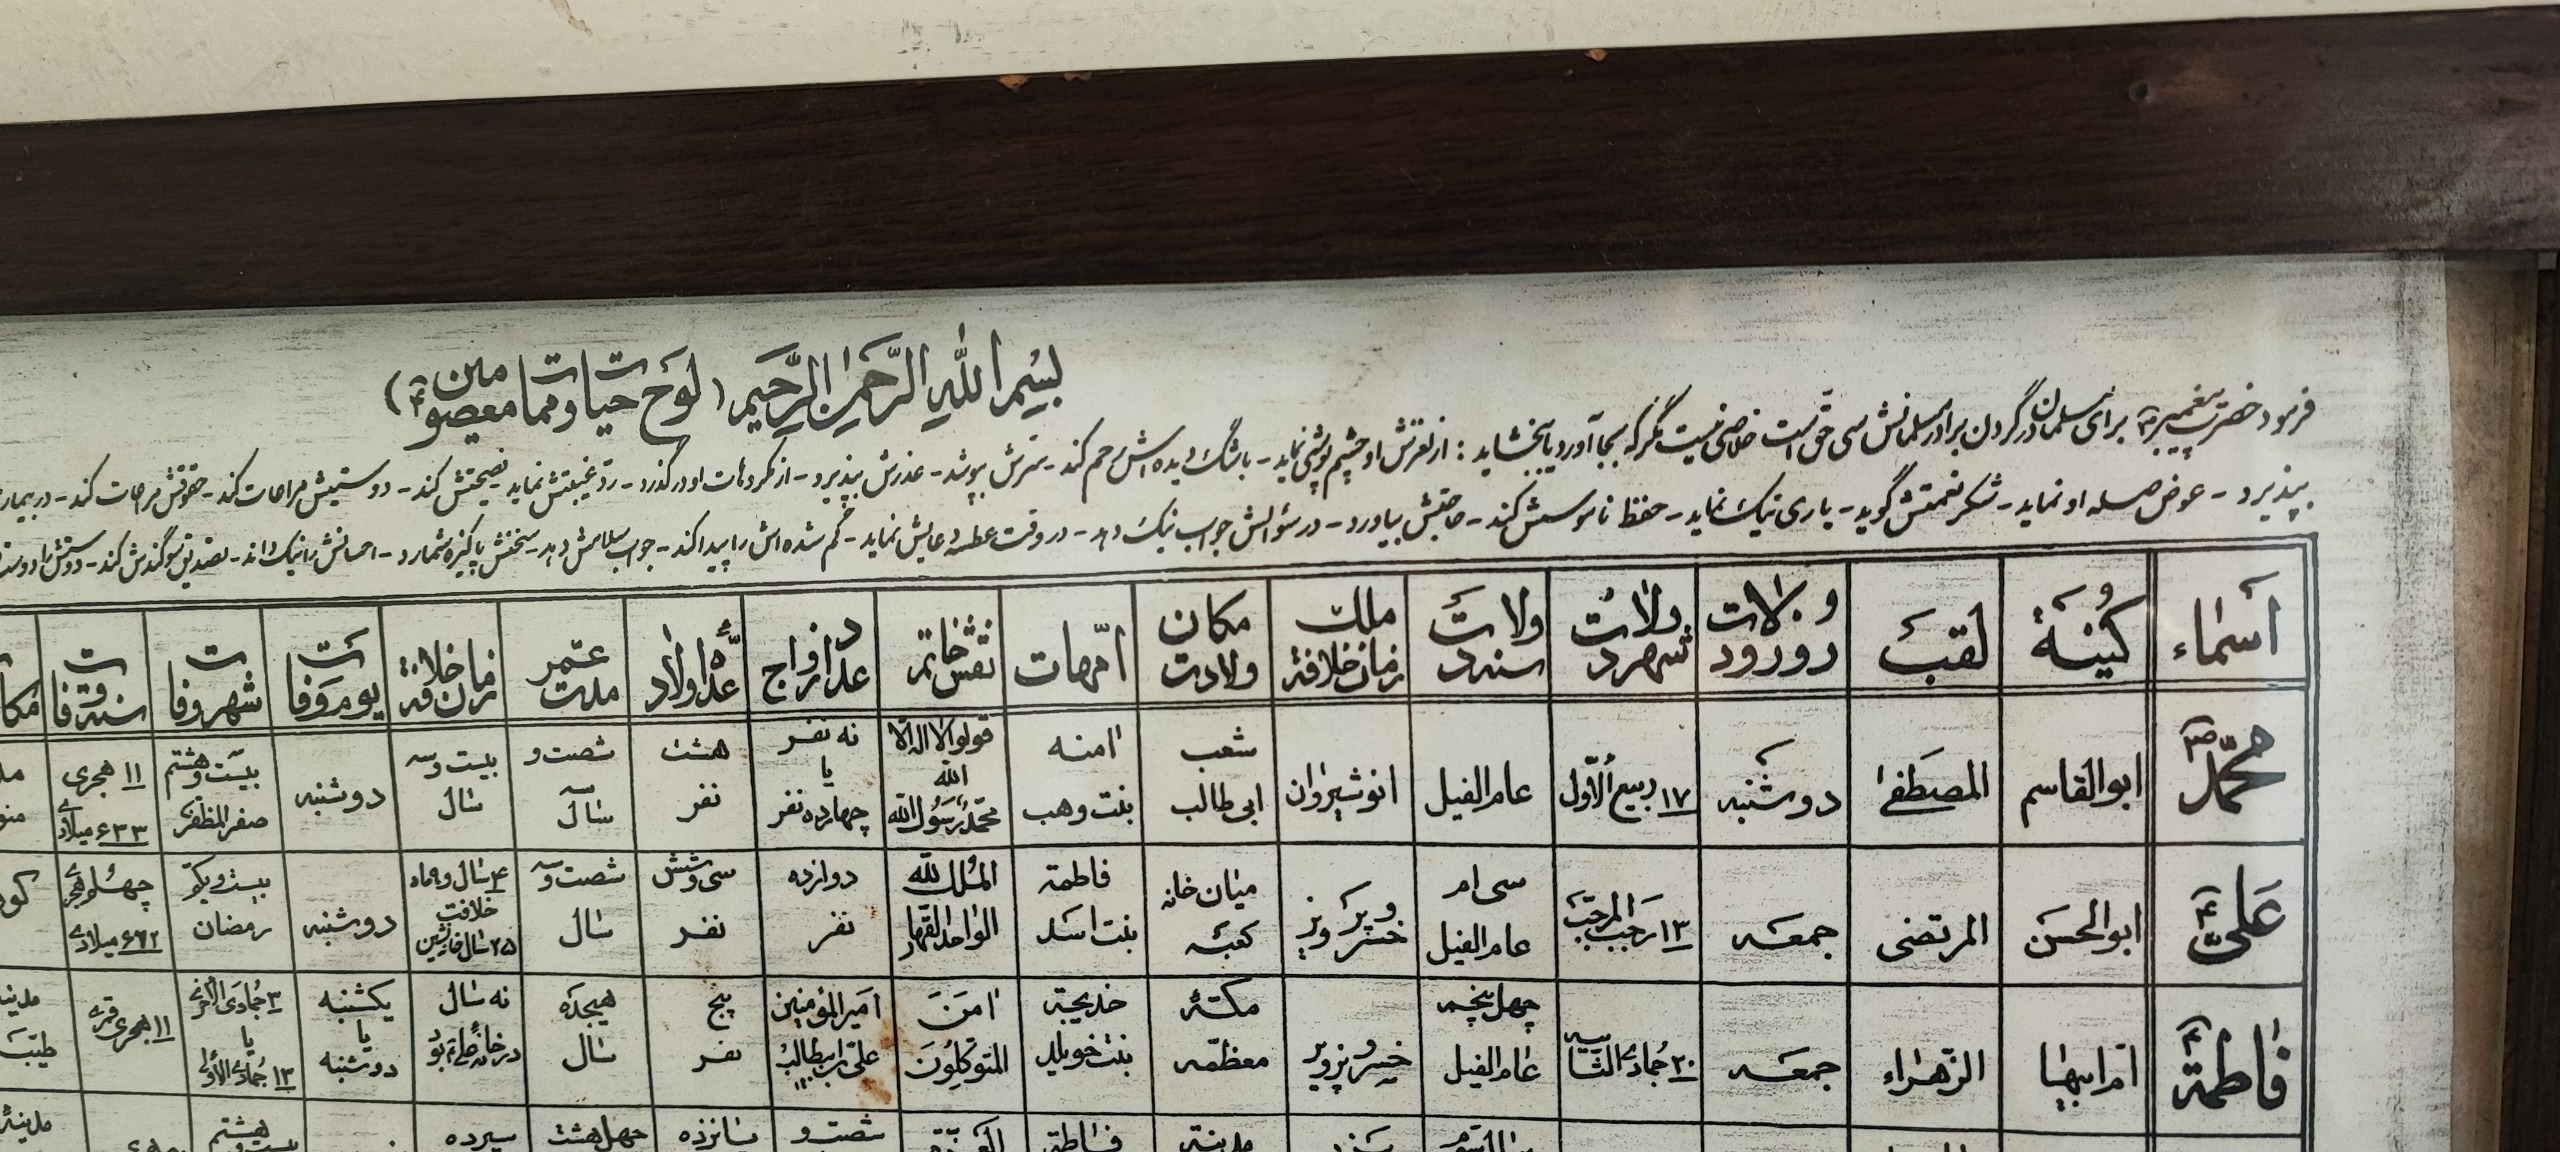 بِسْمِ اللهِ الرَّحْمٰنِ الرَّحِيمِ (لوح حیات و ممات معصومین ع)
فرمود حضرت پیغمبر ص برای مسلمان در گردن برادر مسلمانش سی حق است خلاصی نیست مگر که بجا آورد یا ببخشاید : از لغزش او چشم پوشی نماید - باشک دیده اش رحم کند - سرش بپوشد - عذرش بپذیرد - از مکروهات او در گذرد - رد غیبتش نماید - نصیحتش کند - دوستیش مراعات کند - حقوقش مراعات کند - در بیمار
بپذیرد - عوض صله او نماید - شکر نعمتش گوید - یاری نیک نماید - حفظ ناموسش کند - حاجتش بیاورد - در سئوالش جواب نیک دهد - در وقت عطسه دعایش نماید - گم شده اش را پیدا کند - جواب سلامش دهد - سخنش پاکیزه شمارد - احسانش را نیک داند - تصدیق سوگندش کند - دوستش را دوست
اسماء کنیة لقب روز ولادت شهر ولادت سنه ولادت ملک زمان خلافة مکان ولادت امّهات نقش خاتم عدد ازواج عدد اولاد مدت عمر زمان خلافة یوم وفات شهر وفات سنه وفات
محمّد ص ابوالقاسم المصطفی دوشنبه ۱۷ ربیع الاوّل عام الفیل انوشیروان شعب ابی طالب امنه بنت وهب قولوا لا اله الا الله محمّد رسول الله نه نفر یا چهارده نفر هشت نفر شصت و سه سال بیست و سه سال دوشنبه بیست و هشتم صفر المظفر ۱۱ هجری ۶۳۳ میلادی
علیّ ع ابوالحسن المرتضی جمعه ۱۳ رجب المرجب سی ام عام الفیل خسرو پرویز میان خانه کعبه فاطمة بنت اسد الملک لله الواحد القهار دوازده نفر سی و شش نفر شصت و سه سال ۴ سال و ماه خلافت ۲۵ سال خانه نشین دوشنبه بیست و یکم رمضان چهلم هجری ۶۶۲ میلادی
فاطمة ع ام ابیها الزهراء جمعه ۲۰ جمادی الثانیه چهل پنجم عام الفیل خسرو پرویز مکة معظمه خدیجة بنت خویلد امن المتوکلون امیر المؤمنین علی ابن ابیطالب پنج نفر هیجده سال نه سال در خانه علی بود یکشنبه یا دوشنبه ۳ جمادی الاخر یا ۱۳ جمادی الاولی ۱۱ هجری قمری طیبه
مدینه شصت و پانزده چهل هشت سیزده هشتم